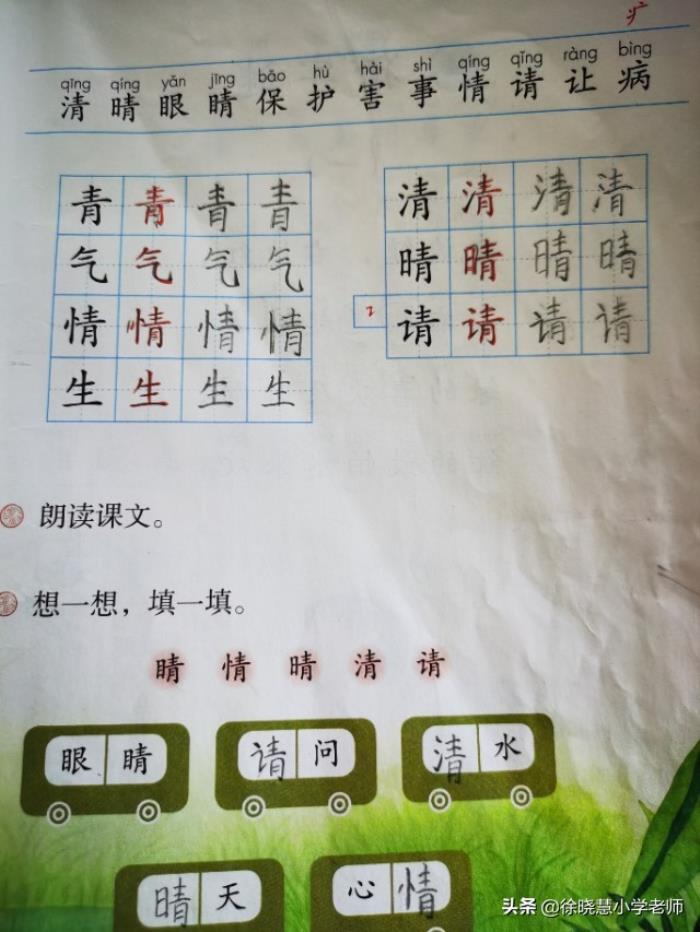 疒
qīng qíng yǎn jīng bǎo hù hài shì qíng qǐng ràng bìng
清 晴 眼 睛 保 护 害 事 情 请 让 病
青 青 青 青
气 气 气 气
情 情 情 情
生 生 生 生
清 清 清 清
晴 晴 晴 晴
请 请 请 请
朗读课文。
想一想，填一填。
睛 情 晴 清 请
眼 睛 请 问 清 水
晴 天 心 情
头条 @徐晓慧小学老师